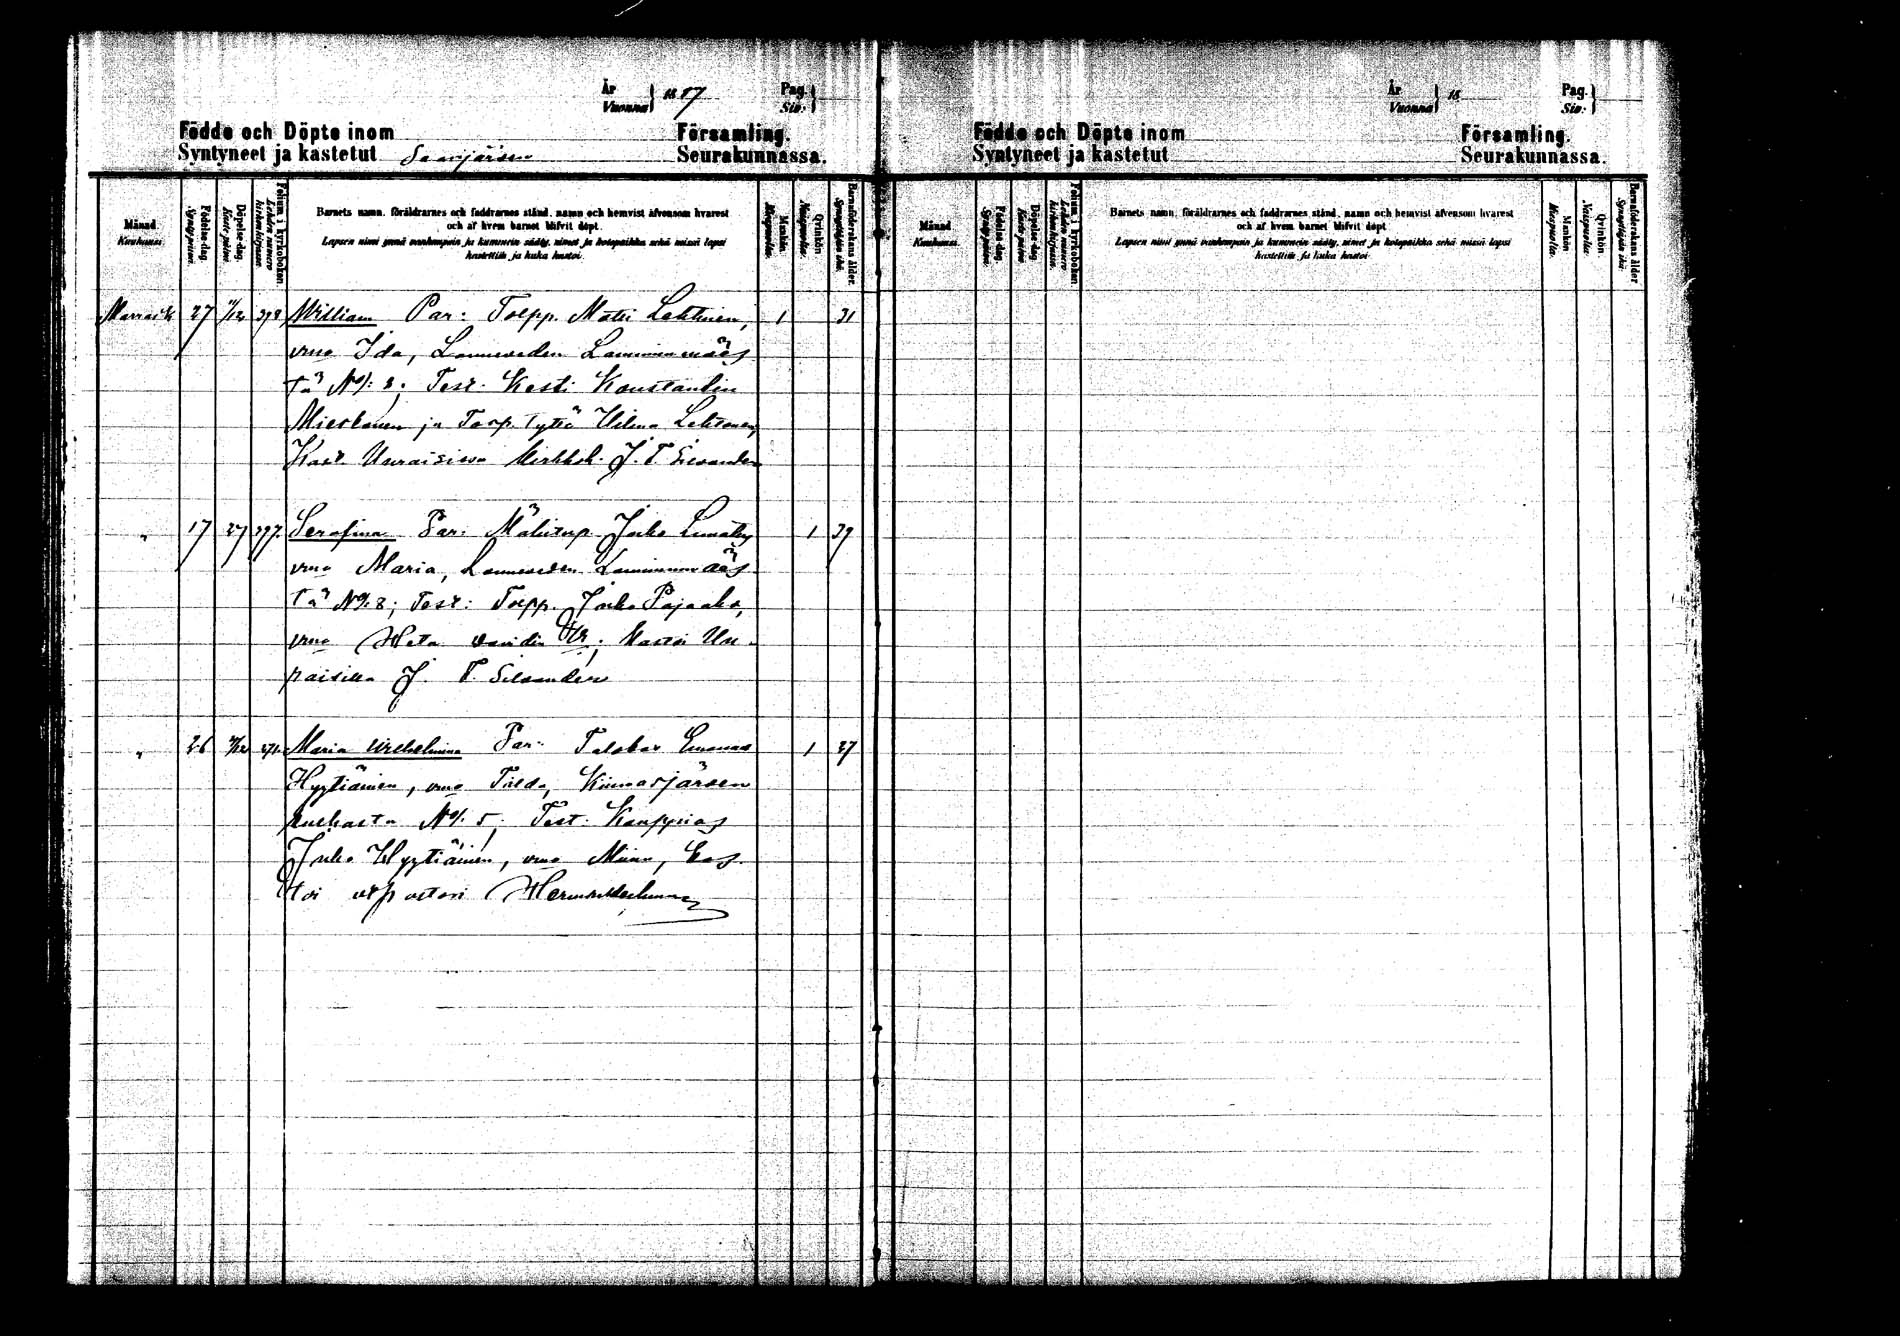 År
Vuonna } 1887
Pag.
Siv. }
Födde och Döpte inom Församling.
Syntyneet ja kastetut Saarijärven Seurakunnassa.
Månad
Kuukausi.
Födelse-dag.
Syntypäivä.
Döpelse-dag.
Kaste-päivä
Folium i kyrkoboken
Lehden numero kirkonkirjassa.
Barnets namn, föräldrarnes och faddrarnes stånd, namn och hemvist äfvensom hvarest
och af hvem barnet blifvit döpt.
Lapsen nimi ynnä vanhempain ja kummein sääty, nimet ja kotopaikka sekä missä lapsi
kastettiin ja kuka kastoi.
Mankön
Miespuolia.
Qvinkön
Naispuolia.
Barnaföderskans ålder.
Synnyttäjän ikä.
Marrask. 27 4/12 398 William Par: Torpp. Matti Lehtinen, 1 31
vmo Ida, Lanneveden Lamminmääs
tä No/: 8; Test. Kesti Konstantin
ja Torp. tytö Wilma Lehtonen,
Kast. Uuraisissa Kirkkoh. J. T. Silvander
" 17 27 397. Serafina Par: Mäkitup. Juho 1 39
vmo Maria, Lanneveden Lamminmääs
tä No/: 8; Test: Torpp. Juho Pajaaho,
vmo Heta Kastoi Uu-
raisissa J. T. Silvander
" 26 4/12 Maria Wilhelmina Par: Talokas 1 27
Hyytiäinen, vmo Tilda, Kiimasjärven
No/: 5; Test: Kauppias
Juho Hyytiäinen, vmo Miina, Kas-
toi vt pastori
År
Vuonna } 18
Pag.
Siv. }
Födde och Döpte inom Församling.
Syntyneet ja kastetut Seurakunnassa.
Månad
Kuukausi.
Födelse-dag.
Syntypäivä.
Döpelse-dag.
Kaste-päivä
Folium i kyrkoboken
Lehden numero kirkonkirjassa.
Barnets namn, föräldrarnes och faddrarnes stånd, namn och hemvist äfvensom hvarest
och af hvem barnet blifvit döpt
Lapsen nimi ynnä vanhempain ja kummein sääty, nimet ja kotopaikka sekä missä lapsi
kastettiin ja kuka kastoi.
Mankön
Miespuolia.
Qvinkön
Naispuolia.
Barnaföderskans ålder
Synnyttäjän ikä.